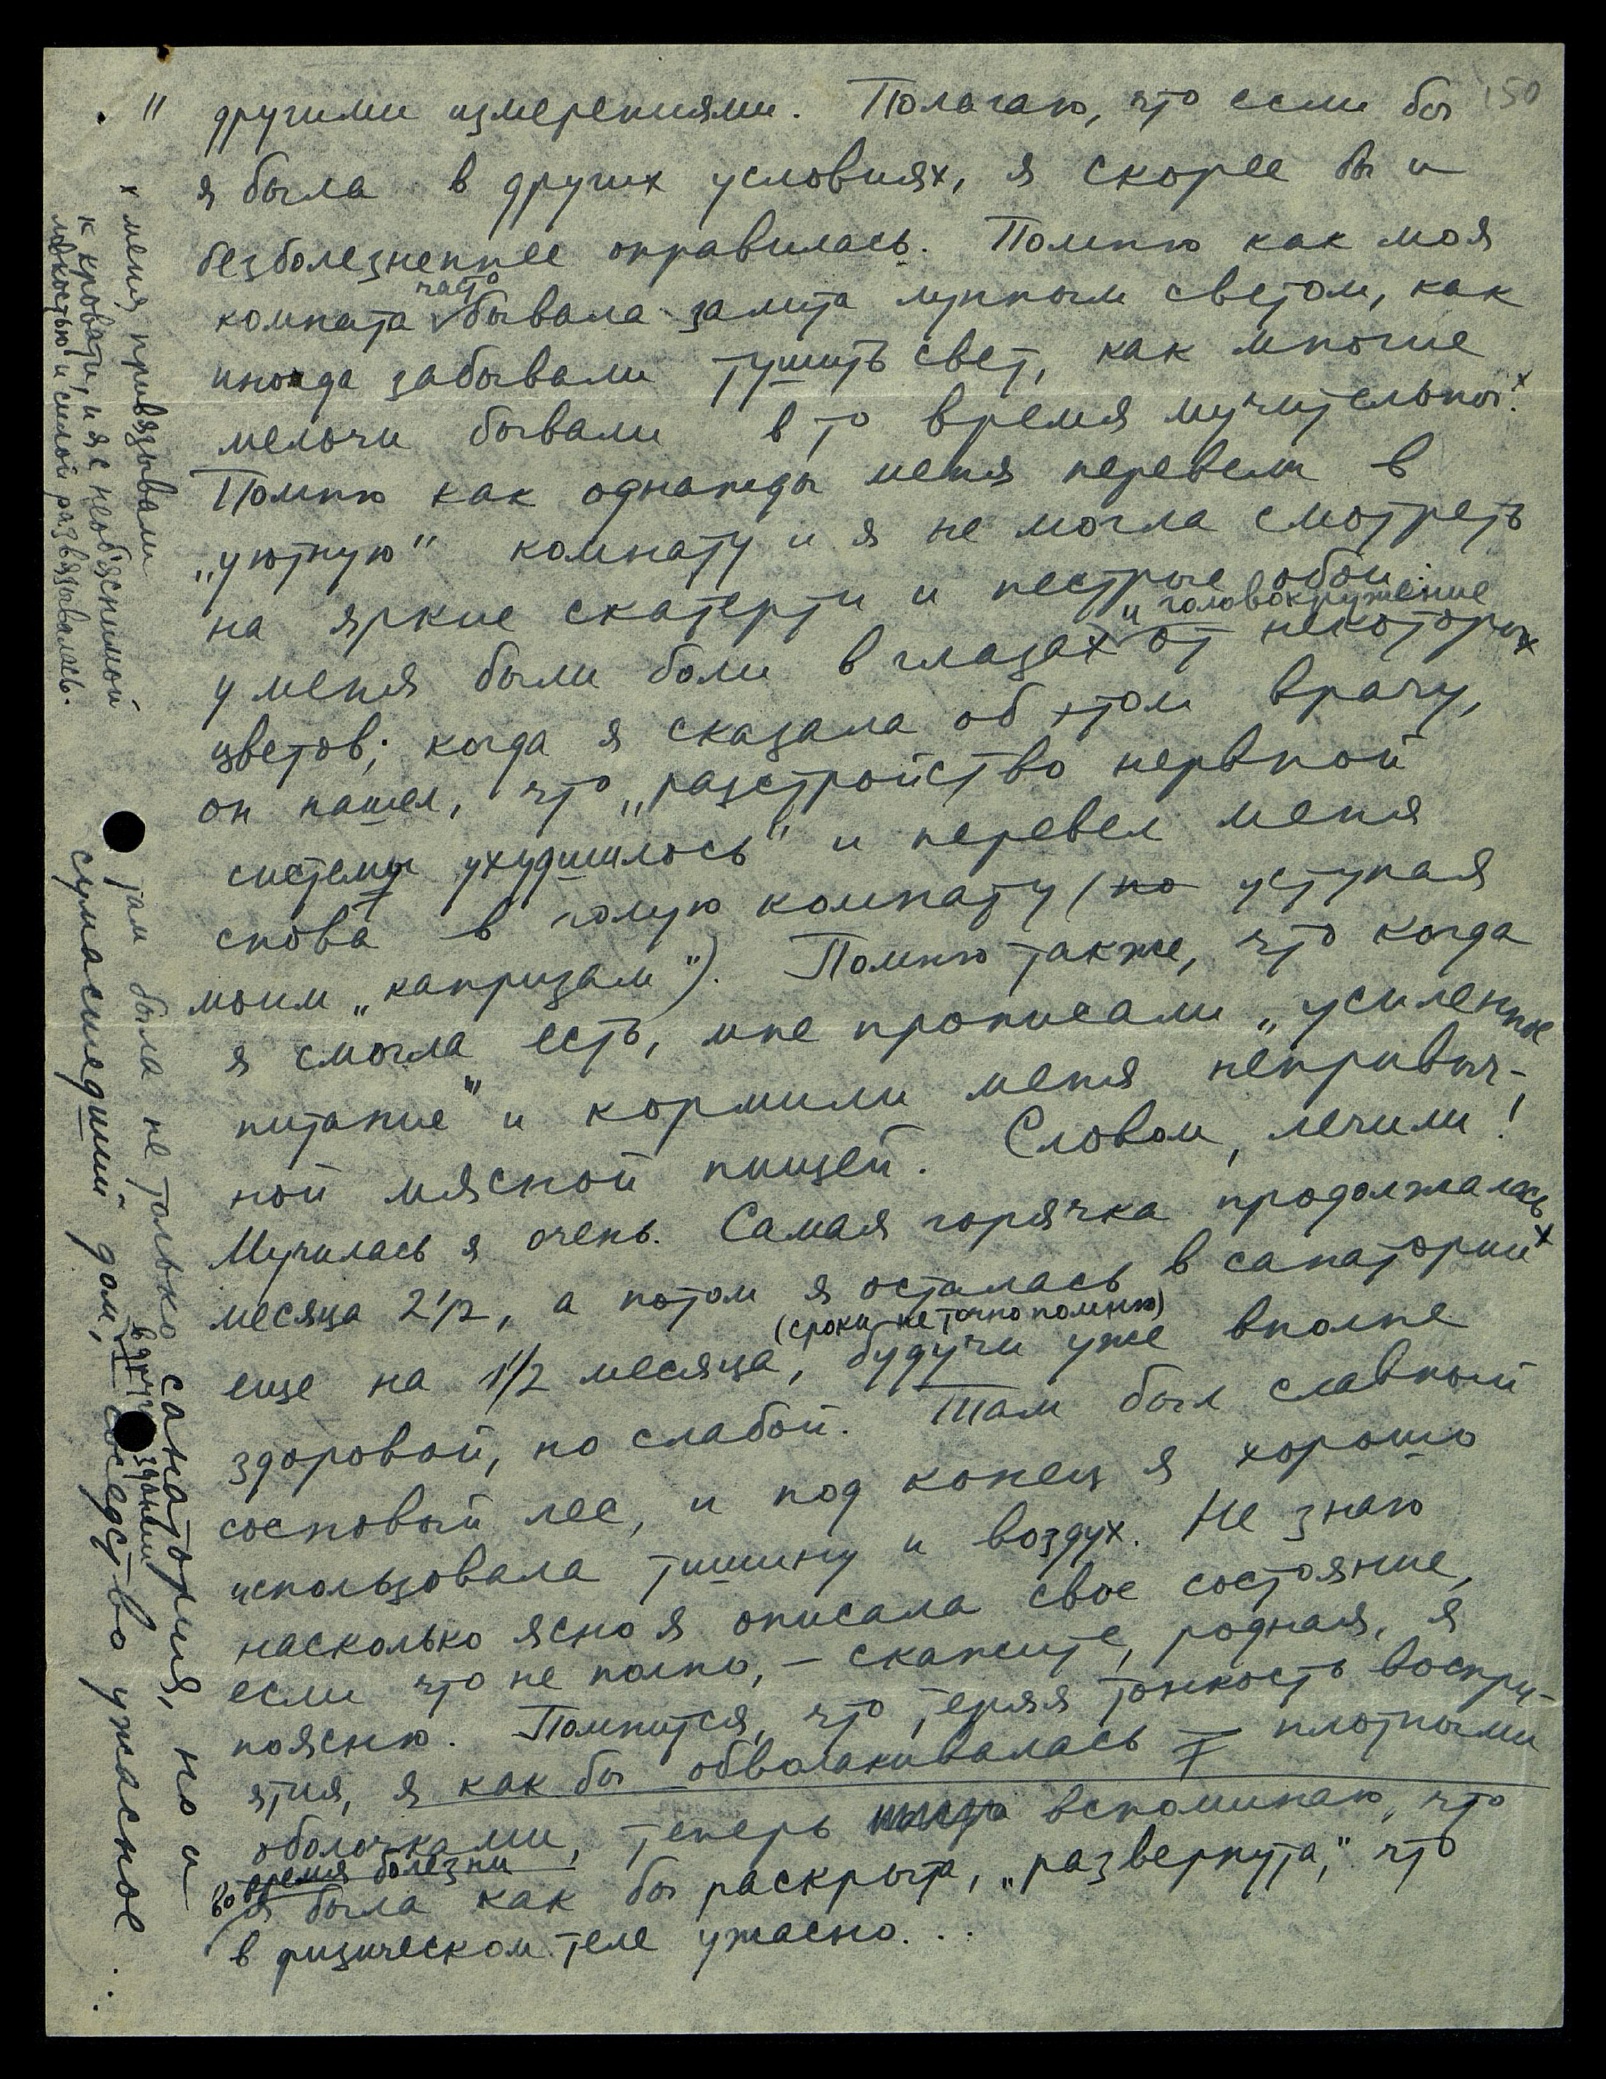 150
" другими измерениями. Полагаю, что если бы
я была в других условиях, я скорее бы и
безболезненнее оправилась. Помню как моя
часто
комната бывала залита лунным светом, как
иногда забывали тушить свет, как многие
мелочи бывали в то время мучительны.х
Помню как однажды меня перевели в
„уютную" комнату и я не могла смотреть
на яркие скатерти и пестрые обои:
и головокружение
у меня были боли в глазах от некоторых
цветов; когда я сказала об этом врачу,
он нашел, что „разстройство нервной
системы ухудшилось" и перевел меня
снова в голую комнату (но уступая
моим „капризам"). Помню также, что когда
я смогла есть, мне прописали „усиленное
питание" и кормили меня непривыч-
ной мясной пищей. Словом, лечили!
Мучилась я очень. Самая горячка продолжалась
месяца 2 1/2, а потом я осталась в санатории х
(сроки не точно помню)
еще на 1 1/2 месяца, будучи уже вполне
здоровой, но слабой. Там был славный
сосновый лес, и под конец я хорошо
использовала тишину и воздух. Не знаю
насколько ясно я описала свое состояние,
если что не полно, – скажите, родная, я
поясню. Помнится, что теряя тонкость воспри-
ятия, я как бы обволакивалась плотными
оболочками, теперь вспоминаю, что
во время болезни
я была как бы раскрыта, „развернута", что
в физическом теле ужасно...
х меня привязывали
к кровати, и я с необъяснимой
ловкостью и силой развязывалась.
там была не только санатория, но и
в другом здании
сумасшедший дом, соседство ужасное...